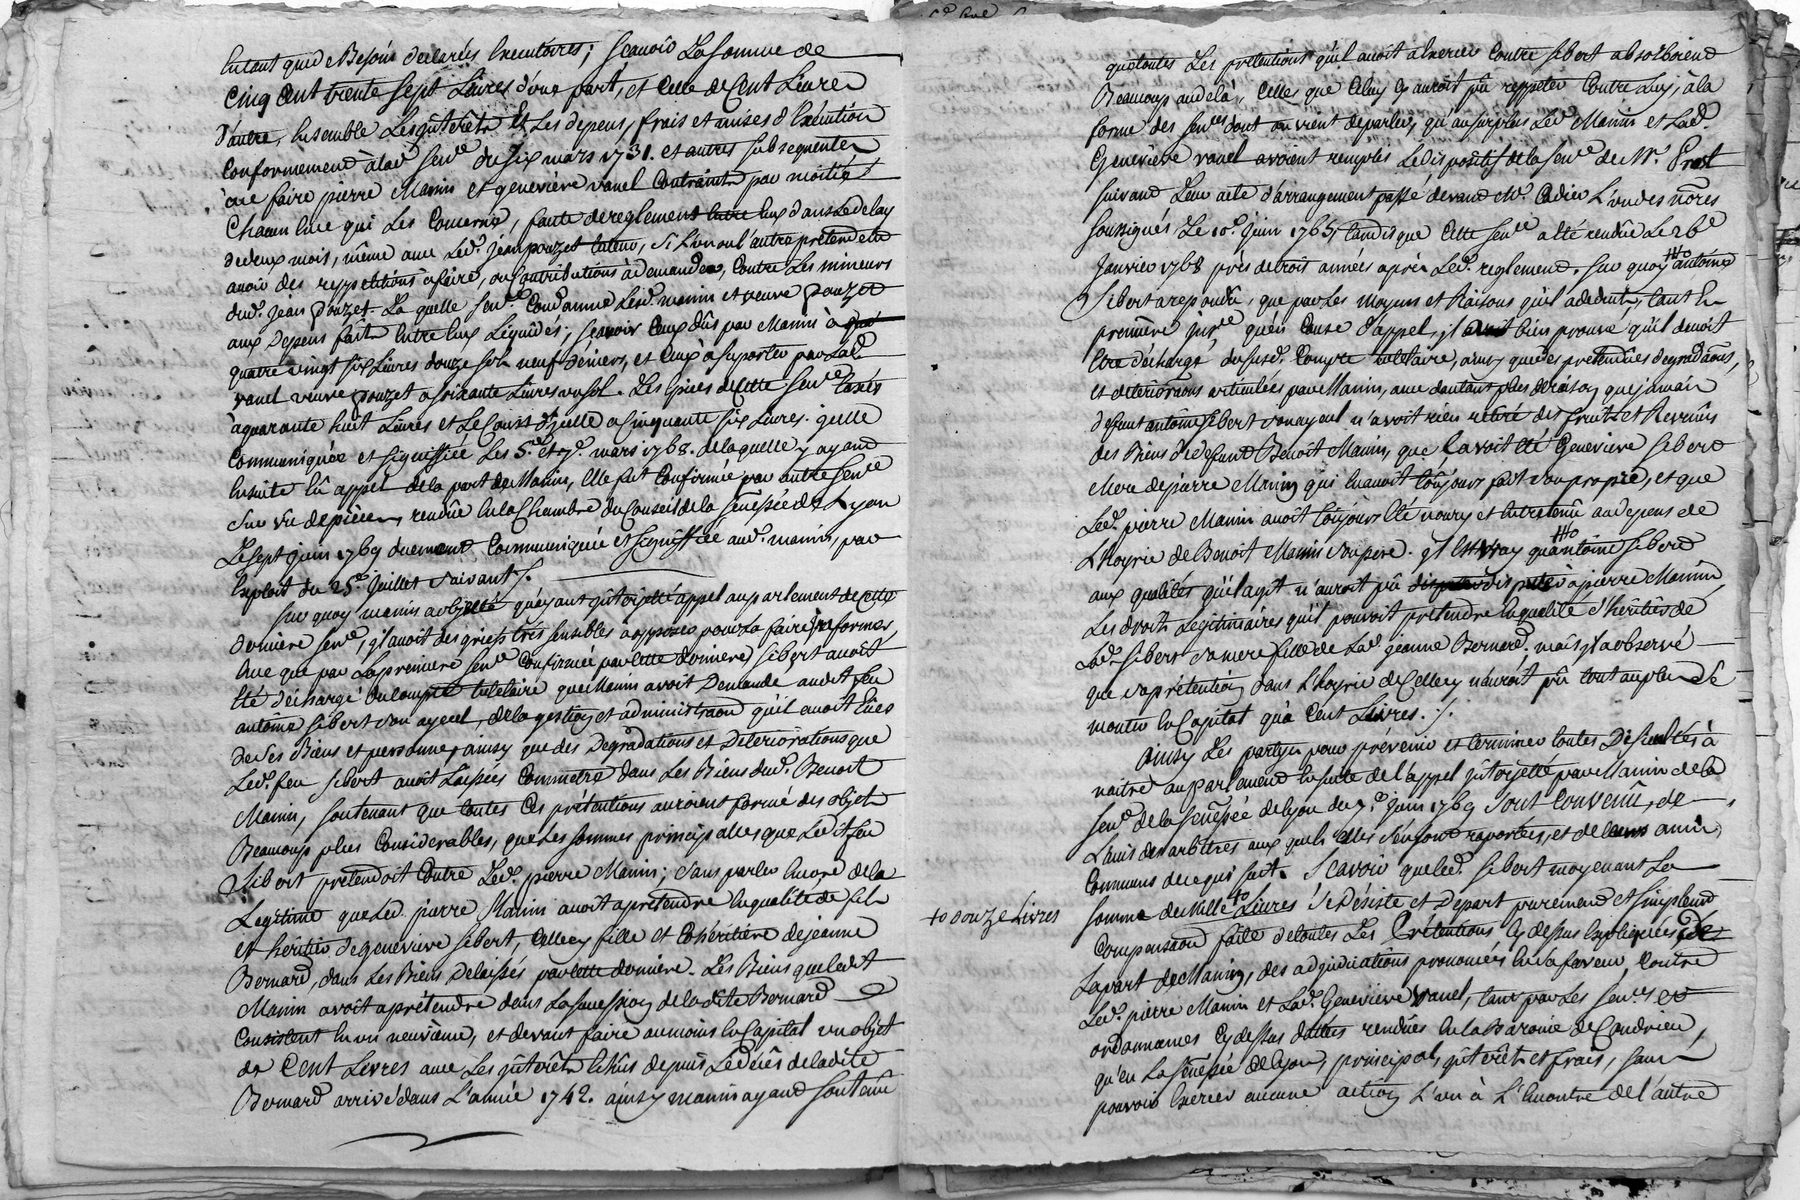 Entant que de Besoin declarées Executoires; scavoir La somme de
cinq Cent trente sept Livres d'une part, et Celle de Cent Livres
d'autre, Ensemble Les interêts Et Les depens, frais et mises d'Execution
Conformement à lad.e Sen.ce du Six mars 1731. et autres subsequentes
à ce faire pierre Manin et geneviève vanel Contraints par moitié
Chacun En ce qui Les Concerne, faute de reglement Entre Eux dans Le delay
de deux mois, même avec Led. jean pouzet tuteur, Si L'un ou l'autre pretendent
avoir des reppetitions à faire, ou Contributions à demander, Contre Les mineurs
dud. jean pouzet. La quelle Sen.ce Condamne Lesd. manin et veuve pouzet
aux Depens faits Entre Eux Liquidés; scavoir Ceux dûs par Manin à
quatre vingt six Livres douze sols neuf deniers, et Ceux à suporter par Lad.
vanel veuve pouzet a soixante Livres un sol. Les Epices de Cette Sen.ce taxés
à quarante huit Livres et Le Cours d'jcelle a Cinquante six Livres. jcelle
Communiquée et signiffiée Les 5.e et 7.e mars 1768. de laquelle y ayant
Ensuite Eû appel de la part de Manin, Elle fut Confirmée par autre Sen.ce
sur vû de pièces, rendûe En la Chambre du Conseil de la Senéssée de Lyon
Le sept juin 1769 duement Communiquée et signiffiée aud. manin, par
Exploit du 25.e juillet suivant./.
Sur quoy manin a objecté qu'ayant jnterjetté appel au parlement de Cette
derniere Sen.ce, il avoit des griefs trés sensibles a opposer pour La faire reformer,
En ce que par La premiere Sen.ce Confirmée par Cette derniere, Sibert avoit
Eté déchargé du Compte tutelaire que Manin avoit Demandé audit feu
antoine Sibert son ayeul, de la gestion et administraon qu'il avoit Eûes
de ses Biens et personne, ainsy que des Degradations et Deteriorations que
Led. feu Sibert avoit Laissées Commettre dans Les Biens dud. Benoit
Manin, soutenant que toutes Ces prétentions auroient formé des objets
Beaucoup plus Considerables, que Les sommes principalles que Ledit feu
Sibert pretendoit Contre Led. pierre Manin; sans parler Encore de la
Legitime que Led. pierre Manin avoit a pretendre En qualité de fils
et héritier de genevieve Sibert, Celle cy fille Et Cohéritière de jeanne
Bernard, dans Les Biens Delaissés par Cette derniere. Les Biens que Ledit
Manin avoit a prétendre dans La succession de ladite Bernard
Consistent En un neuvieme, et devant faire au moins En Capital un objet
de Cent Livres avec Les jnterêts Echûs depuis Le décés de ladite
Bernard arrivé dans L'année 1742. ainsy manin ayant soutenu
que toutes Les prétentions qu'il avoit a Exercer Contre Sibert absorboient
Beaucoup au delà, Celles que Celuy cy auroit pû reppeter Contre Luy, à la
forme des Sen.ces dont on vient de parler, qu'au surplus Led. Manin et Lad.
Genevieve vanel avoient remplis Le dispositif de la Sen.ce de M.
suivant Leur acte d'arrangement passé devant M.e Cadier L'un des nores
soussignés, Le 10.e juin 1765, tandis que Cette Sen.ce a été rendûe Le 26.e
Janvier 1768 près de trois années aprés Led. reglement. Sur quoy antoine
Sibert a repondu, que par Les moyens et Raisons qu'il a deduits, tant En
premiere jns.ce qu'en Cause d'appel, il avoit bien prouvé qu'il devoit
Etre déchargé du susd. Compte tutelaire, ainsy que des pretendües degradaons,
et deterioraons articulées par Manin, avec d'autant plus de raison que jamais
deffunt antoine Sibert son ayeul n'avoit rien retiré des fruits et Revenus
des Biens de deffunt Benoit Manin, que C'avoit été Genevieve Sibert
Mere de pierre Manin qui En avoit toûjours fait son propre, et que
Led. pierre Manin avoit toûjours Eté noury et Entretenû aux depens de
L'hoyrie de Benoit Manin son pere. il Est vray qu'antoine Sibert
aux qualités qu'il agit n'auroit pû disputer à pierre Manin
Les droits Legitimaires qu'il pouvoit prétendre En qualité d'héritier de
lad. Sibert sa mere fille de Lad. jeanne Bernard. mais il a observé
que sa prétention dans L'hoyrie de Celle cy n'auroit pû tout au plus se
monter En Capital qu'à Cent Livres./.
Ainsy Les partyes pour prévenir et terminer toutes Dificultés à
naitre au parlement En suite de l'appel jnterjetté par Manin de la
Sen.ce de la Senéssée de Lyon du 7.e juin 1769 sont Convenû, de
L'avis des arbitres aux quels Elles s'en sont raportées, et de leurs amis
Communs de ce qui suit. Scavoir que led. Sibert moyenant La
somme de Mille to Livres se Désiste et Départ purement et simplement
to douze Livres
Compensaon faite de toutes Les Prétentions Cy dessus Expliquées de
La part de Manin, des adjudications prononcées En sa faveur, Contre
Led. pierre Manin et Lad. Genevieve vanel, tant par Les Sen.ces et
ordonnances Cy dessus dattées rendûes En la Baronie de Condrieu,
qu'en La Senéssée de Lyon, principal, jnterêts et frais, sans
pouvoir Exercer aucune action L'un à L'Encontre de l'autre